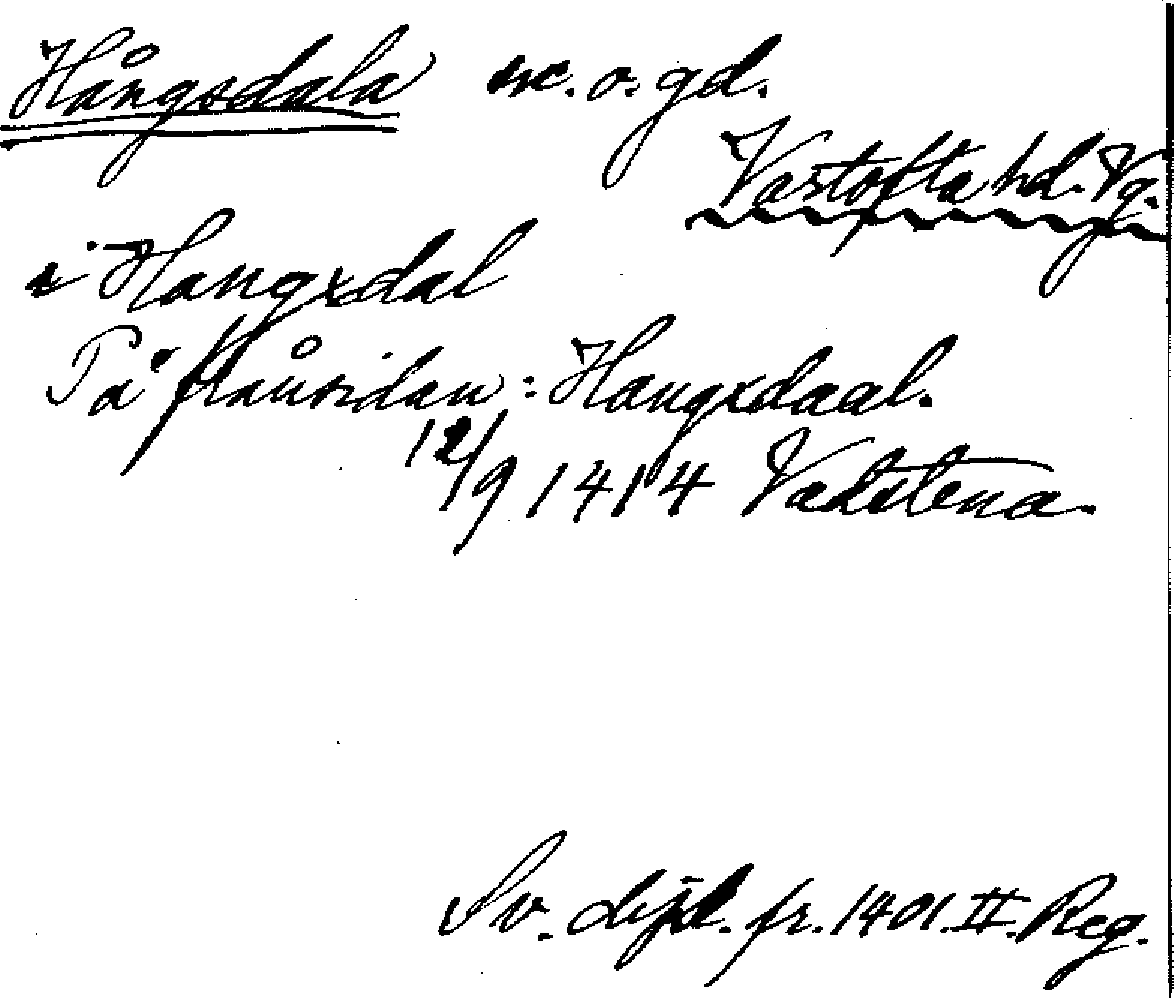 Hångsdala sn. o. gd.
Vartofta hd. Vg.
i Hangxdal
På frånsidan: Hangxdaal.
12/9 1414 Vadstena.
Sv. dipl. fr. 1401. II. Reg.